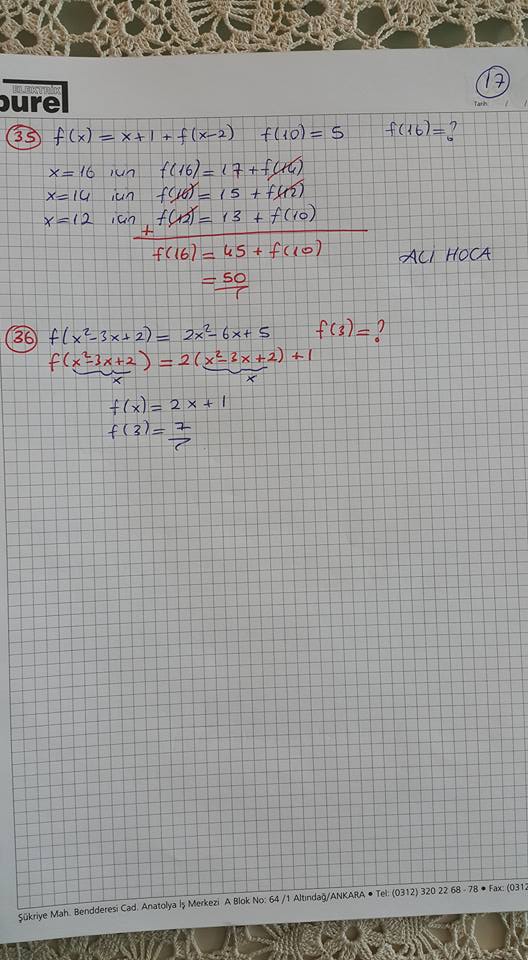 ELEKTRİK
purel
17
Tarih: / /
35 f(x) = x+1 + f(x-2) f(10) = 5 f(16) = ?
x=16 için f(16) = 17 + f(14)
x=14 için f(16) = 15 + f(12)
x=12 için f(12) = 13 + f(10)
+
f(16) = 45 + f(10)
= 50
ACI HOCA
36 f(x²-3x+2) = 2x²-6x+5 f(3) = ?
f(x²-3x+2) = 2(x²-3x+2) + 1
x x
f(x) = 2x+1
f(3) = 7
Şükriye Mah. Bendderesi Cad. Anatolya İş Merkezi A Blok No: 64 /1 Altındağ/ANKARA • Tel: (0312) 320 22 68 - 78 • Fax: (0312